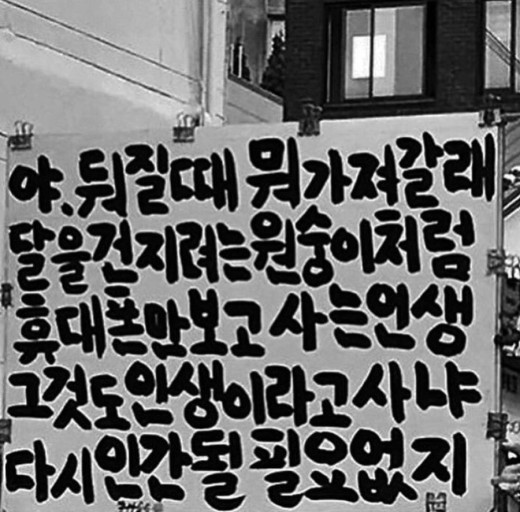 야. 뒤질때 뭐가져갈래
달을건지려는원숭이처럼
휴대폰만보고 사는인생
그것도인생이라고사냐
다시인간될 필요없지